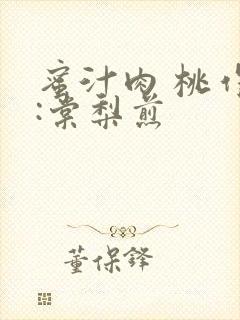 蜜汁肉 桃 作
:棠梨煎
董保铎